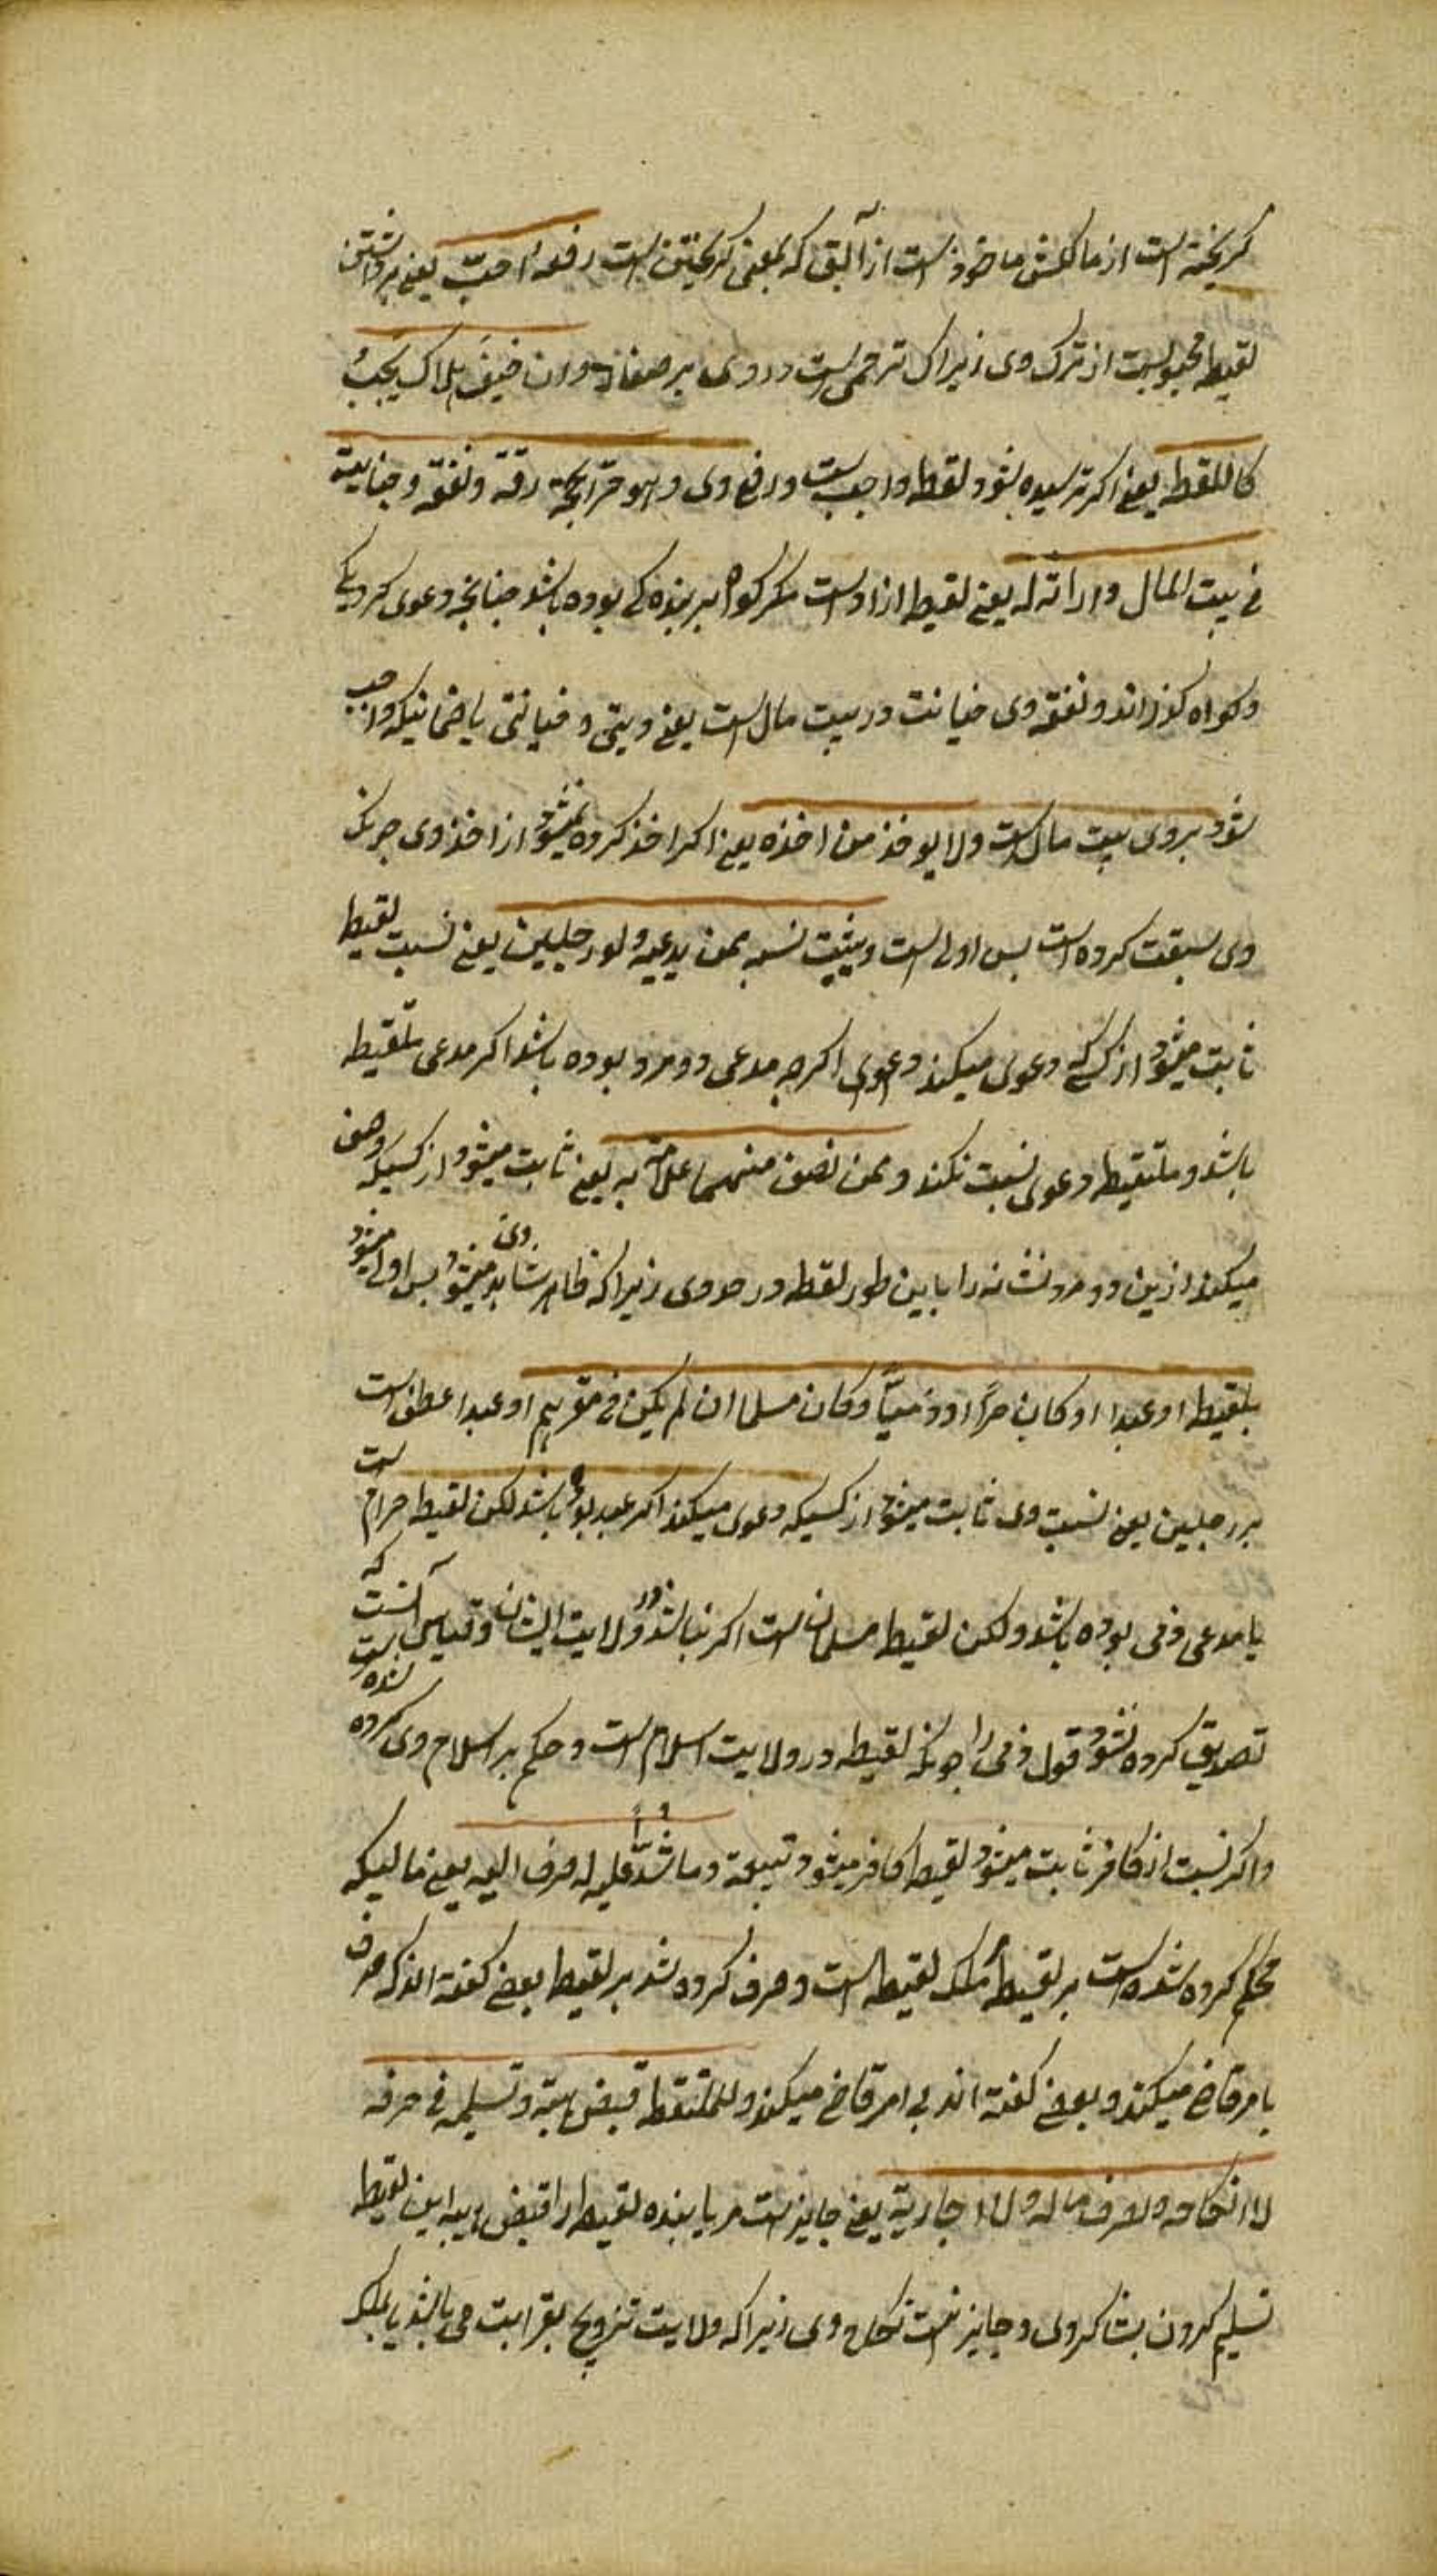 کریخته است از مالکش ماخوذ است از آلبق که بمعنی کریختن است رفعه احبّ یعنی برداشتن
لقیط محبوبست از ترک وی زیراک ترحمی است در وی بر صغار وان خیف هلاک یجب
کاللقطه یعنی اکر ترسیده بشود لقطه واجبست در رفع وی وهو حرّ الا بحجة رقه ونفقه وجنایته
فی بیت المال وارثه له یعنی لقیط ازاد است مکر کواه بر بنده کی بوده باشد چنانچه دعوی کرد یکی
وکواه کذراند ونفقه وی خیانت در بیت مال است یعنی دیتی وخیانتی یا ضمانیکه واجب
شود بر وی بیت مال است ولا یوخذ من اخذه یعنی اکر اخذ کرده نمیشود از اخذ وی چرنکه
وی سبقت کرده است بس اولی است ویثبت نسبه ممن یدعیه ولو رجلین یعنی نسبت لقیط
ثابت میشود از کسکی دعوی میکند دعوی اکرچه مدعی دو مرد بوده باشد اکر مدعی ملتقیطه
باشد وملتقیطه دعوی نسبت نکند وممن یصف منهما علامة به یعنی ثابت میشود از کسیکه وصف
میکند ازین دو مرد نشانه را باین طور لقطه در حد وی زیراکه ظاهر شاهد وی میشود بس اولی میشود
بلقیط او عبدا او کان حرًا او ذمیًّا وکان مسلما ان لم یکن فی مقرهم او عبدا عطف است
بر رجلین یعنی نسبت وی ثابت میشود از کسیکه دعوی میکند اکر عبد بوده باشد لکن لقیط حرام است
یا مدعی ذمی بوده باشد ولکن لقیط مسلمان است اکر نباشد در ولایت ایشان وقیاس آنست که
تصدیق کرده نشود قول ذمی را چونکه لقیطه در ولایت اسلام است وحکم بر اسلام وی کرده شده است
واکر نسبت از کافر ثابت میشود لقیط کافر میشود تبعیة وما شدّ علیه له صرف الیه یعنی مالیکه
محکم کرده شده است بر لقیط ملک لقیط است وصرف کرده شد بر لقیط بعضی کفته اند که صرف
بامر قاضی میکند وبعضی کفته اند بی امر قاضی میکند وللملتقطه قبض هبته وتسلیمه فی حرفه
لا انکاحه وصرف ماله ولا اجارته یعنی جایز است مر یابنده لقیط را قبض هبه این لقیط
تسلیم کردن بشاکردی وجایز نیست نکاح وی زیراکه ولایت تزویج بقرابت می باشد یا بملک